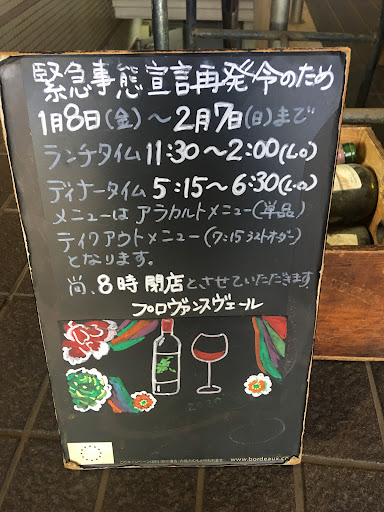 緊急事態宣言再発令のため
1月8日(金)～2月7日(日)まで
ランチタイム 11:30～2:00(L.O)
ディナータイム 5:15～6:30(L.O)
メニューは アラカルトメニュー(単品)
テイクアウトメニュー(7:15ラストオーダー)
となります。
尚、8時閉店とさせていただきます
プロヴァンスヴェール
www.bordeaux.c